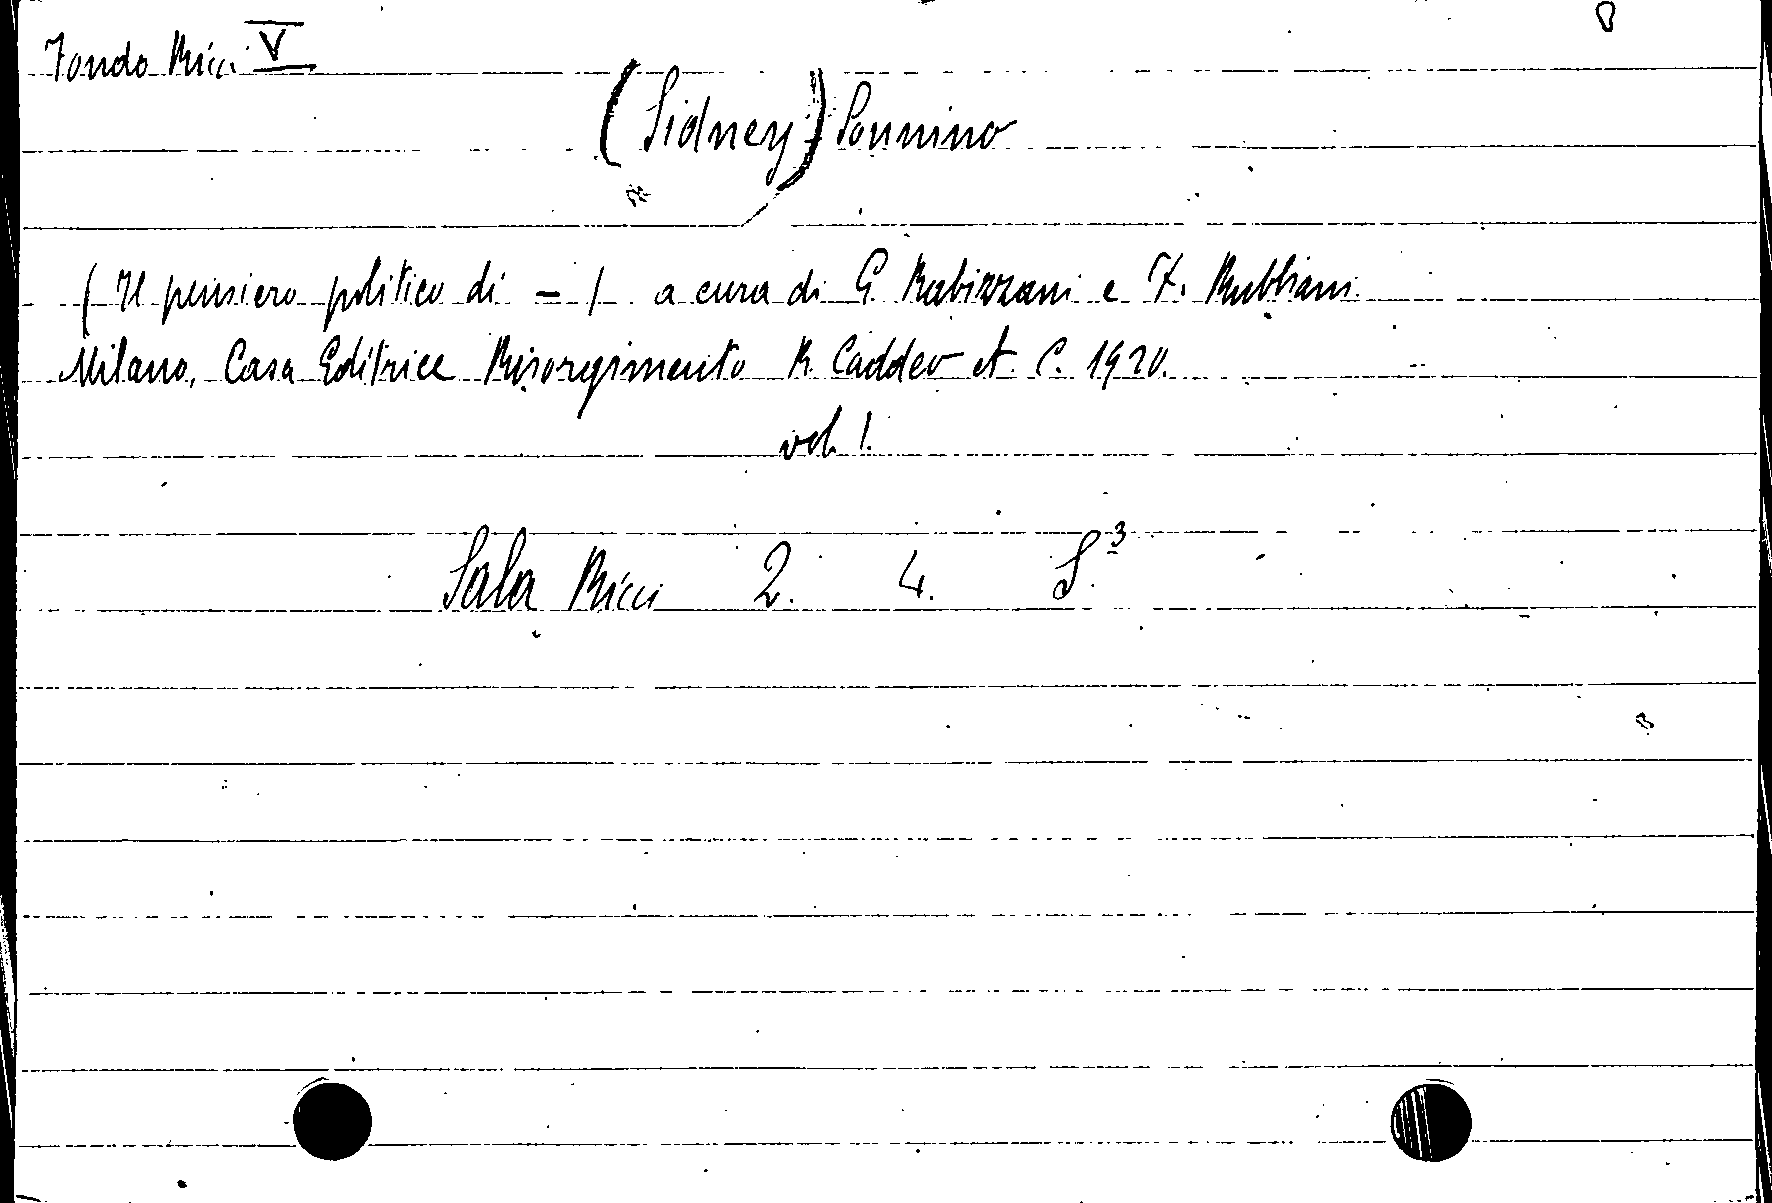 Fondo Ricci V
(Sidney) Sonnino
(Il pensiero politico di - ) a cura di G. Rabizzani e F. Rubbiani.
Milano, Casa Editrice Risorgimento R. Caddeo et C. 1920.
vol. 1.
Sala Ricci 2. 4. S.3